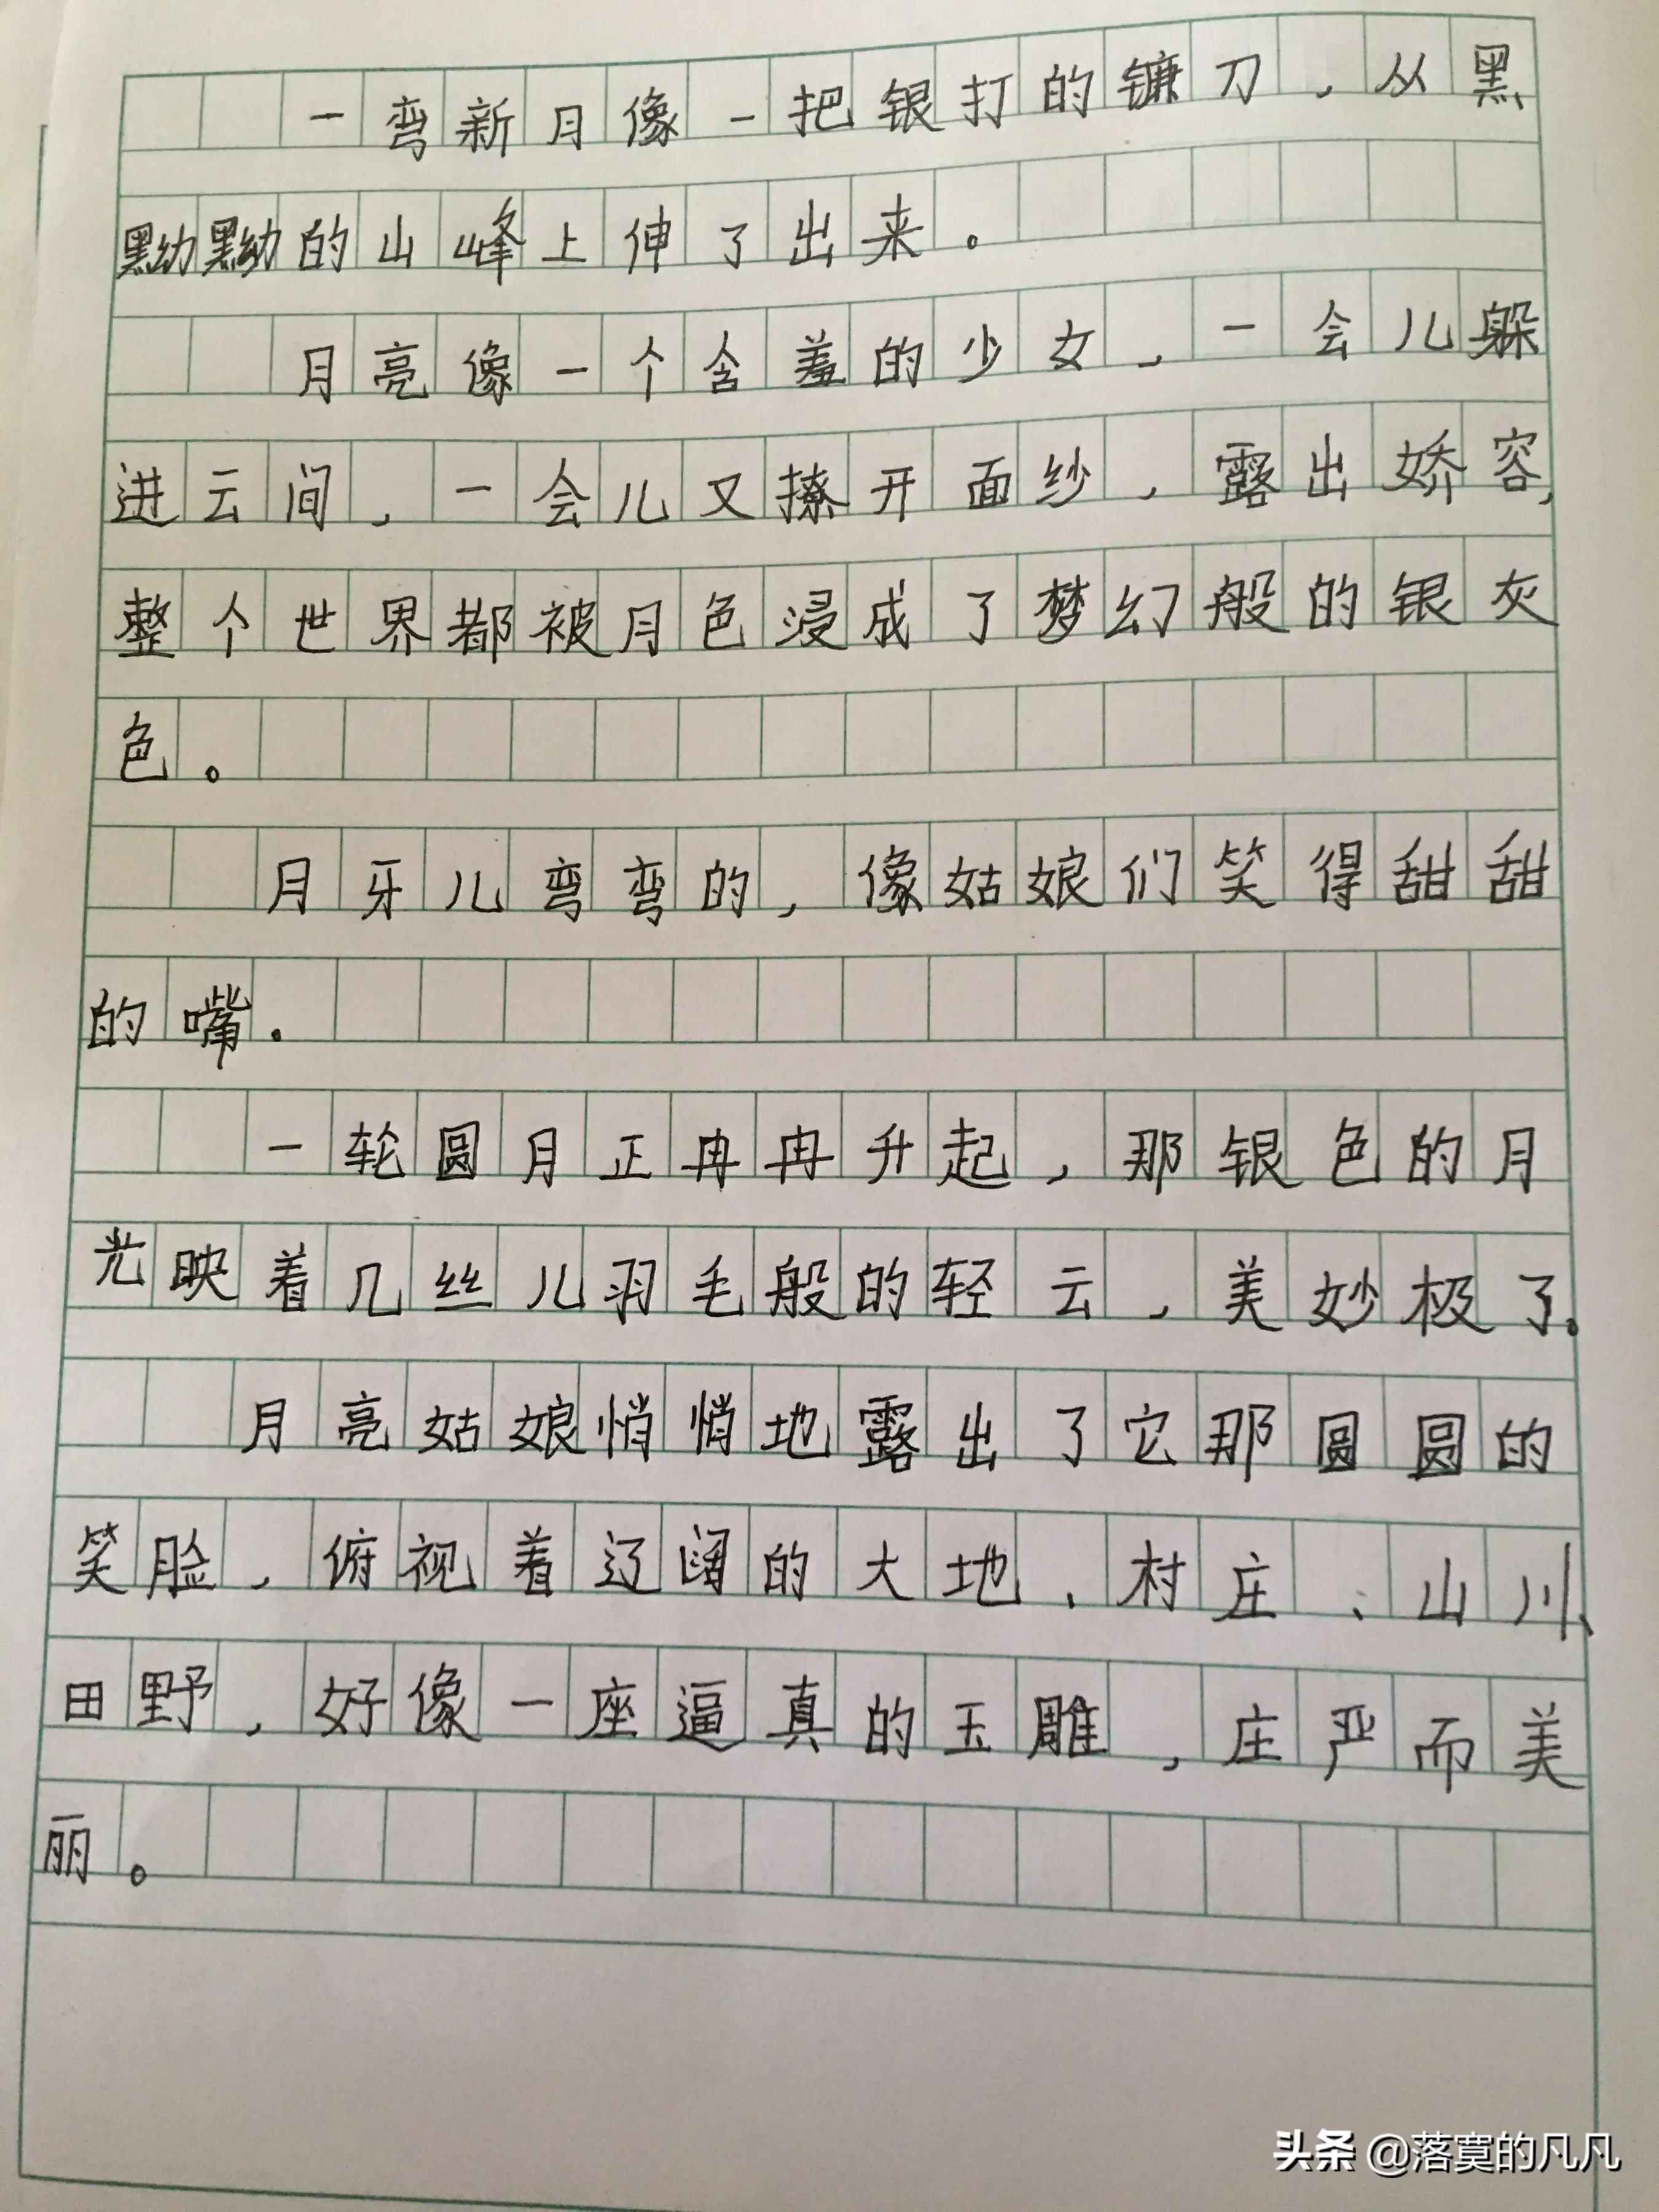 一弯新月像一把银打的镰刀，从黑
黝黝的山峰上伸了出来。
月亮像一个含羞的少女，一会儿躲
进云间，一会儿又撩开面纱，露出娇容，
整个世界都被月色浸成了梦幻般的银灰
色。
月牙儿弯弯的，像姑娘们笑得甜甜
的嘴。
一轮圆月正冉冉升起，那银色的月
光映着几丝儿羽毛般的轻云，美妙极了。
月亮姑娘悄悄地露出了它那圆圆的
笑脸，俯视着辽阔的大地、村庄、山川、
田野，好像一座逼真的玉雕，庄严而美
丽。
头条 @落寞的凡凡